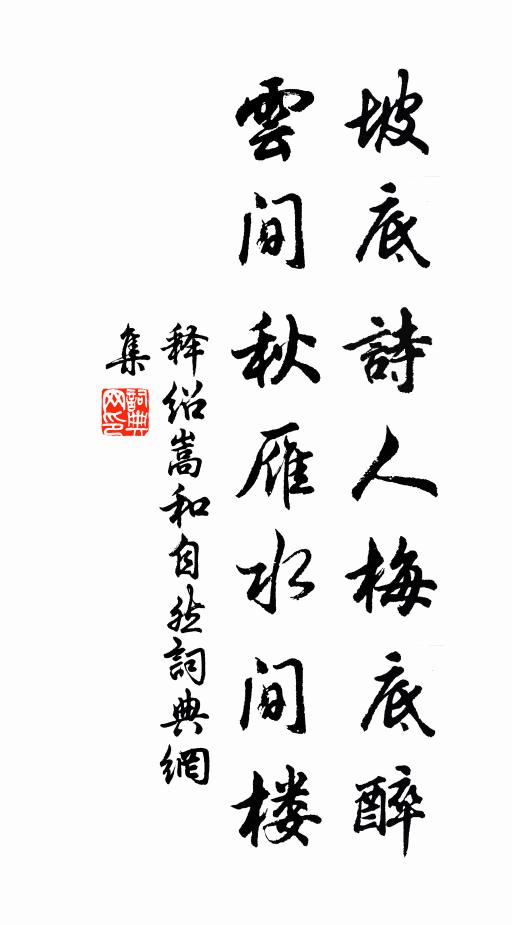 坡底詩人梅底醉
雲间秋雁水间楼
释绍嵩和自然詞典網
集
詞典
网印